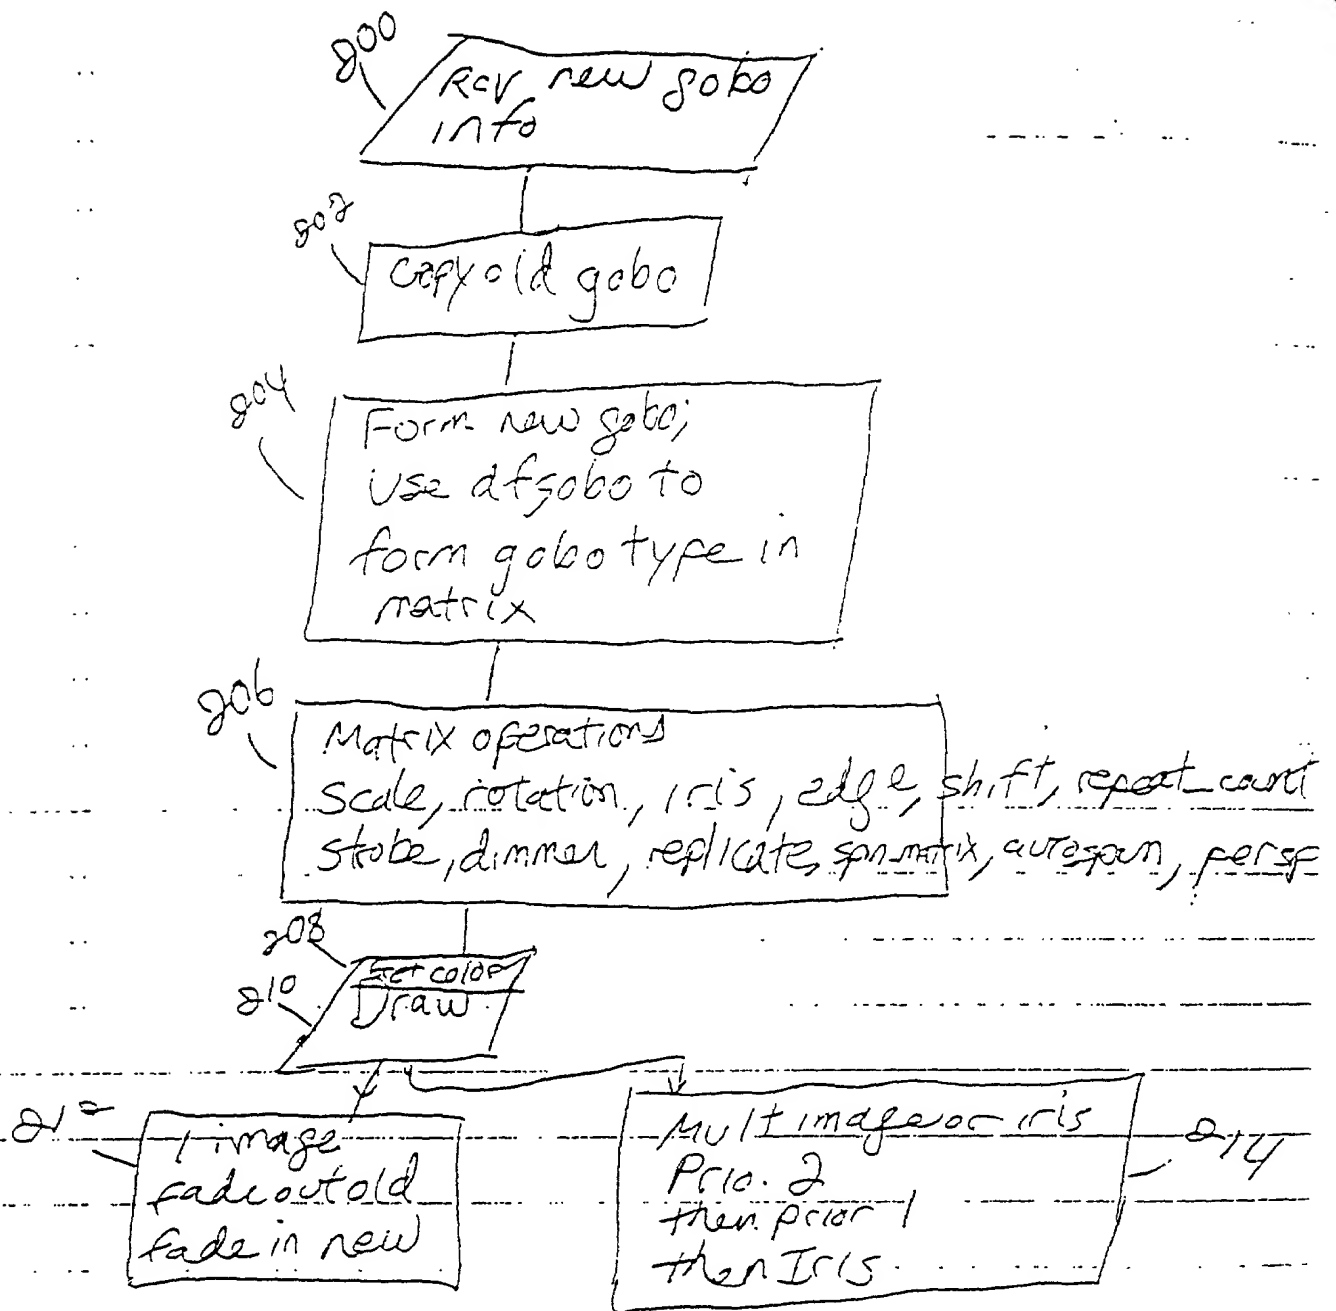 200
Rcv new gobo
info
202
copy old gobo
204
Form new gobo;
use dfgobo to
form gobo type in
matrix
206
Matrix operations
scale, rotation, iris, edge, shift, repeat_count
strobe, dimmer, replicate, spn.matrix, autospun, persp
208
Set color
210
Draw
212
1 image
fade out old
fade in new
Mult image or iris
Prio. 2
then prior 1
then Iris
214